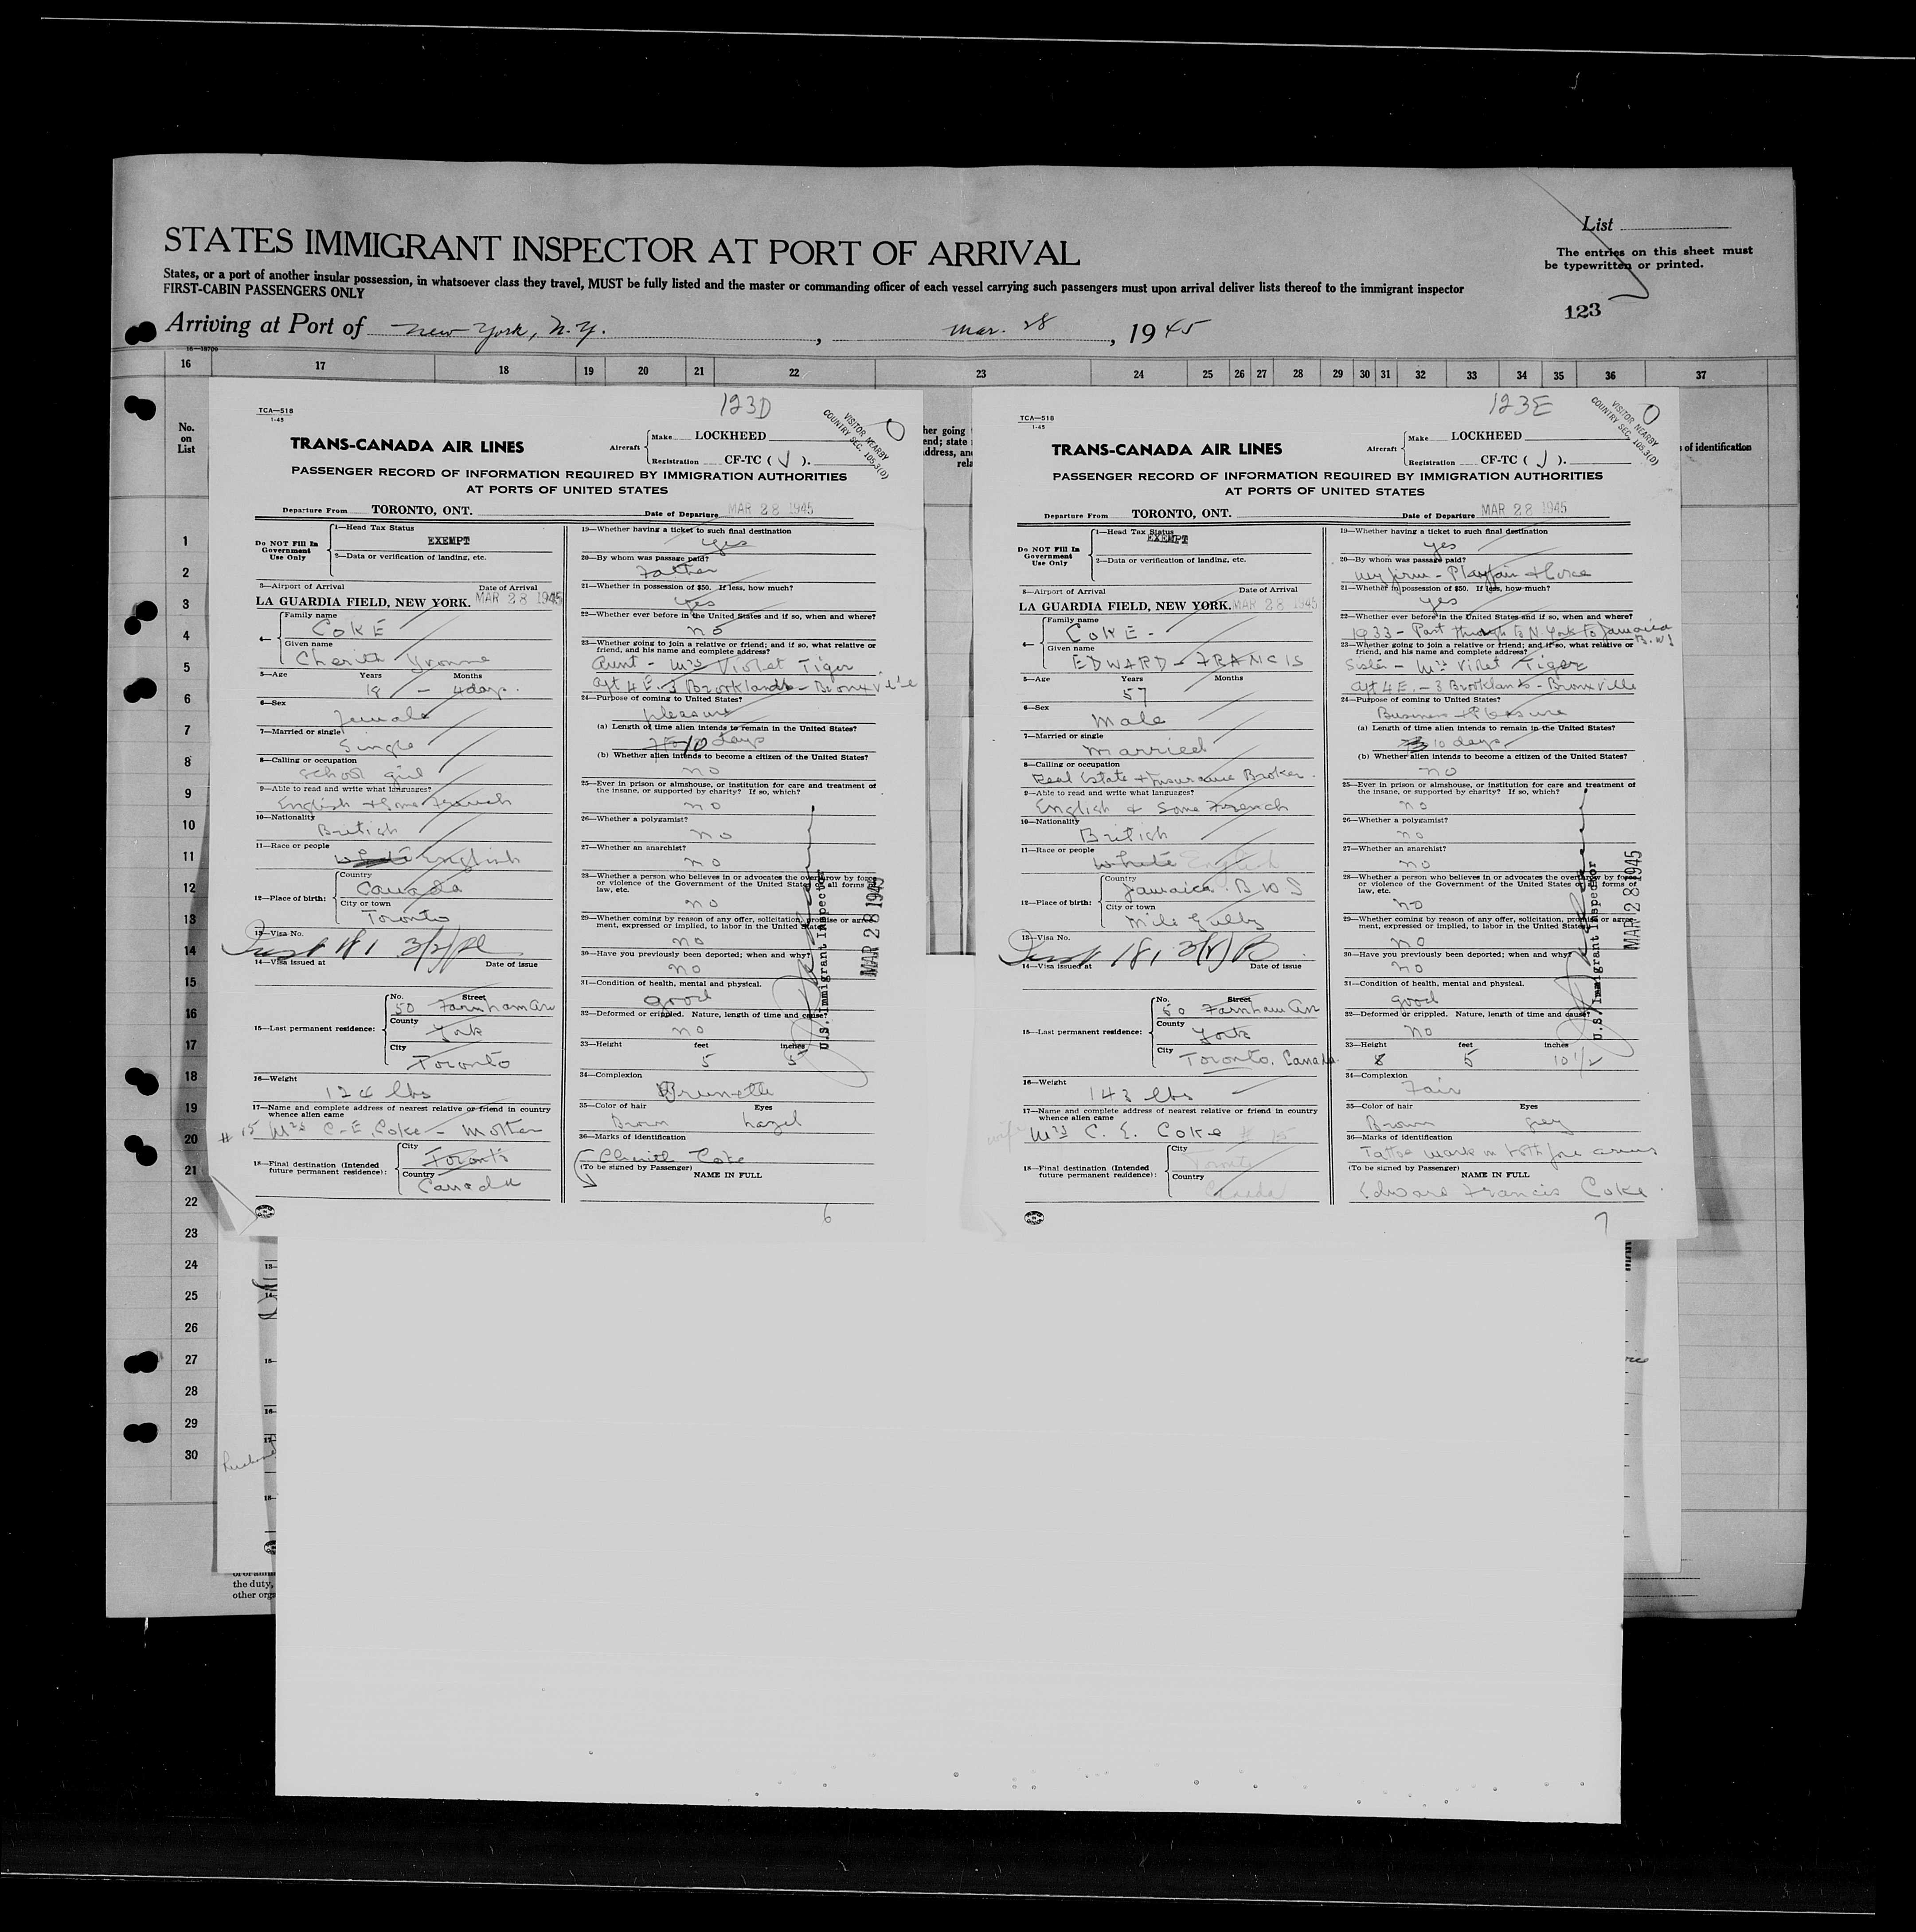 STATES IMMIGRANT INSPECTOR AT PORT OF ARRIVAL
States, or a port of another insular possession, in whatsoever class they travel, MUST be fully listed and the master or commanding officer of each vessel carrying such passengers must upon arrival deliver lists thereof to the immigrant inspector
FIRST-CABIN PASSENGERS ONLY
List
The entries on this sheet must
be typewritten or printed.
123
Arriving at Port of New York, N.Y., Mar. 28, 1945
16 17 18 19 20 21 22 23 24 25 26 27 28 29 30 31 32 33 34 35 36 37
No.
on
List
of identification
1
2
3
4
5
6
7
8
9
10
11
12
13
14
15
16
17
18
19
20
21
22
23
24
25
26
27
28
29
30
the duty,
123D
TCA—518
1-45
VISITOR NEARBY
COUNTRY SEC. 105.3(D)
TRANS-CANADA AIR LINES
Aircraft Make LOCKHEED
Registration CF-TC ( J ).
PASSENGER RECORD OF INFORMATION REQUIRED BY IMMIGRATION AUTHORITIES
AT PORTS OF UNITED STATES
Departure From TORONTO, ONT. Date of Departure MAR 28 1945
Do NOT Fill In
Government
Use Only
1—Head Tax Status
EXEMPT
2—Data or verification of landing, etc.
3—Airport of Arrival Date of Arrival
LA GUARDIA FIELD, NEW YORK. MAR 28 1945
4— Family name
COKE
Given name
Cherith Yvonne
5—Age Years Months
18 – 4 days.
6—Sex
female
7—Married or single
Single
8—Calling or occupation
School girl
9—Able to read and write what languages?
English & some French
10—Nationality
British
11—Race or people
White English
12—Place of birth: Country
Canada
City or town
Toronto
13—Visa No.
14—Visa issued at Date of issue
15—Last permanent residence: No. Street
50 Farnham Ave
County
York
City
Toronto
16—Weight
126 lbs
17—Name and complete address of nearest relative or friend in country
whence alien came
#15 Mrs C-E. Coke – Mother
18—Final destination (Intended
future permanent residence): City
Toronto
Country
Canada
19—Whether having a ticket to such final destination
yes
20—By whom was passage paid?
Father
21—Whether in possession of $50. If less, how much?
Yes
22—Whether ever before in the United States and if so, when and where?
no
23—Whether going to join a relative or friend; and if so, what relative or
friend, and his name and complete address?
Aunt – Mrs Violet Tiger
Apt 4E. 3 Brooklands – Bronxville
24—Purpose of coming to United States?
pleasure
(a) Length of time alien intends to remain in the United States?
10 days
(b) Whether alien intends to become a citizen of the United States?
no
25—Ever in prison or almshouse, or institution for care and treatment of
the insane, or supported by charity? If so, which?
no
26—Whether a polygamist?
no
27—Whether an anarchist?
no
28—Whether a person who believes in or advocates the overthrow by force
or violence of the Government of the United States or all forms of
law, etc.
no
29—Whether coming by reason of any offer, solicitation, promise or agree-
ment, expressed or implied, to labor in the United States?
no
30—Have you previously been deported; when and why?
no
31—Condition of health, mental and physical.
good
32—Deformed or crippled. Nature, length of time and cause?
no
33—Height feet inches
5 5
34—Complexion
Brunette
35—Color of hair Eyes
Brown hazel
36—Marks of identification
Cherith Coke
(To be signed by Passenger) NAME IN FULL
U.S. Immigrant Inspector
MAR 28 1945
6
123E
TCA—518
1-45
VISITOR NEARBY
COUNTRY SEC. 105.3(D)
TRANS-CANADA AIR LINES
Aircraft Make LOCKHEED
Registration CF-TC ( J ).
PASSENGER RECORD OF INFORMATION REQUIRED BY IMMIGRATION AUTHORITIES
AT PORTS OF UNITED STATES
Departure From TORONTO, ONT. Date of Departure MAR 28 1945
Do NOT Fill In
Government
Use Only
1—Head Tax Status
EXEMPT
2—Data or verification of landing, etc.
3—Airport of Arrival Date of Arrival
LA GUARDIA FIELD, NEW YORK. MAR 28 1945
4— Family name
COKE -
Given name
EDWARD – FRANCIS
5—Age Years Months
57
6—Sex
Male
7—Married or single
Married
8—Calling or occupation
Real Estate & Insurance Broker.
9—Able to read and write what languages?
English & Some French
10—Nationality
British
11—Race or people
White English
12—Place of birth: Country
Jamaica. B W I
City or town
Mile Gully
13—Visa No.
14—Visa issued at Date of issue
15—Last permanent residence: No. Street
50 Farnham Ave
County
York
City
Toronto. Canada.
16—Weight
143 lbs
17—Name and complete address of nearest relative or friend in country
whence alien came
wife Mrs C. E. Coke # 15
18—Final destination (Intended
future permanent residence): City
Toronto
Country
Canada
19—Whether having a ticket to such final destination
yes
20—By whom was passage paid?
My firm – Playfair & Coke
21—Whether in possession of $50. If less, how much?
yes
22—Whether ever before in the United States and if so, when and where?
1933 – Past through to N. York to Jamaica B.W.I
23—Whether going to join a relative or friend; and if so, what relative or
friend, and his name and complete address?
Sister – Mrs Violet Tiger
Apt 4E. – 3 Brooklands – Bronxville
24—Purpose of coming to United States?
Business & Pleasure
(a) Length of time alien intends to remain in the United States?
10 days
(b) Whether alien intends to become a citizen of the United States?
no
25—Ever in prison or almshouse, or institution for care and treatment of
the insane, or supported by charity? If so, which?
no
26—Whether a polygamist?
no
27—Whether an anarchist?
no
28—Whether a person who believes in or advocates the overthrow by force
or violence of the Government of the United States or all forms of
law, etc.
no
29—Whether coming by reason of any offer, solicitation, promise or agree-
ment, expressed or implied, to labor in the United States?
no
30—Have you previously been deported; when and why?
no
31—Condition of health, mental and physical.
good
32—Deformed or crippled. Nature, length of time and cause?
no
33—Height feet inches
5 10 1/2
34—Complexion
Fair
35—Color of hair Eyes
Brown Grey
36—Marks of identification
Tattoe mark on both fore arms
(To be signed by Passenger) NAME IN FULL
Edward Francis Coke.
U.S. Immigrant Inspector
MAR 28 1945
7